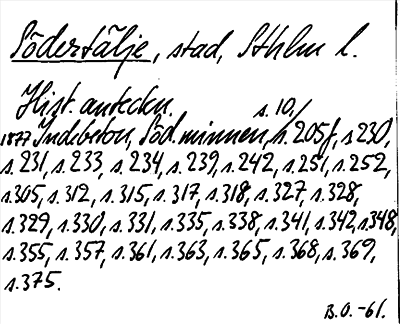 Södertälje, stad, Sthlm l.
Hist. anteckn.
s. 10,
1877 Indebetou, Söd. minnen, s. 205f, s 230,
s. 231, s. 233, s. 234, s. 239, s. 242, s. 251, s. 252,
s. 305, s. 312, s. 315, s. 317, s. 318, s. 327, s. 328,
s. 329, s. 330, s. 331, s. 335, s. 338, s. 341, s. 342, s 348,
s. 355, s. 357, s. 361, s. 363, s. 365, s. 368, s. 369,
s. 375.
B.O. -61.